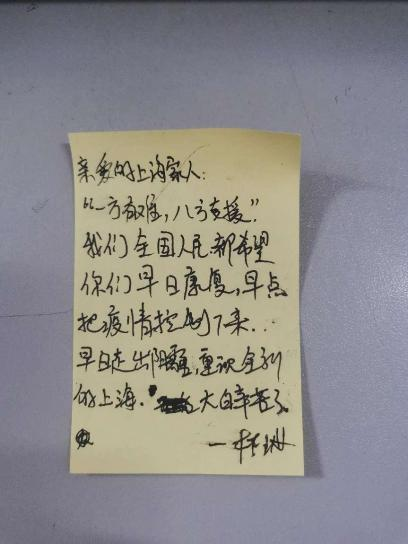 亲爱的上海家人:
"一方有难,八方支援"。
我们全国人民都希望
你们早日康复,早点
把疫情控制下来..
早日走出阴霾,重识全新
的上海. 大白辛苦了